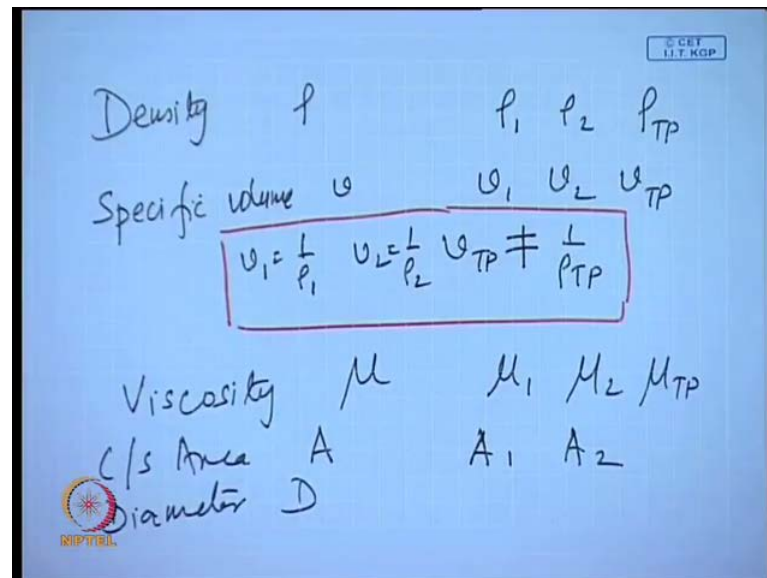 © CET
I.I.T. KGP
Density ρ ρ₁ ρ₂ ρTP
Specific volume υ υ₁ υ₂ υTP
υ₁ = 1/ρ₁ υ₂ = 1/ρ₂ υTP ≠ 1/ρTP
Viscosity μ μ₁ μ₂ μTP
C/s Area A A₁ A₂
Diameter D
NPTEL